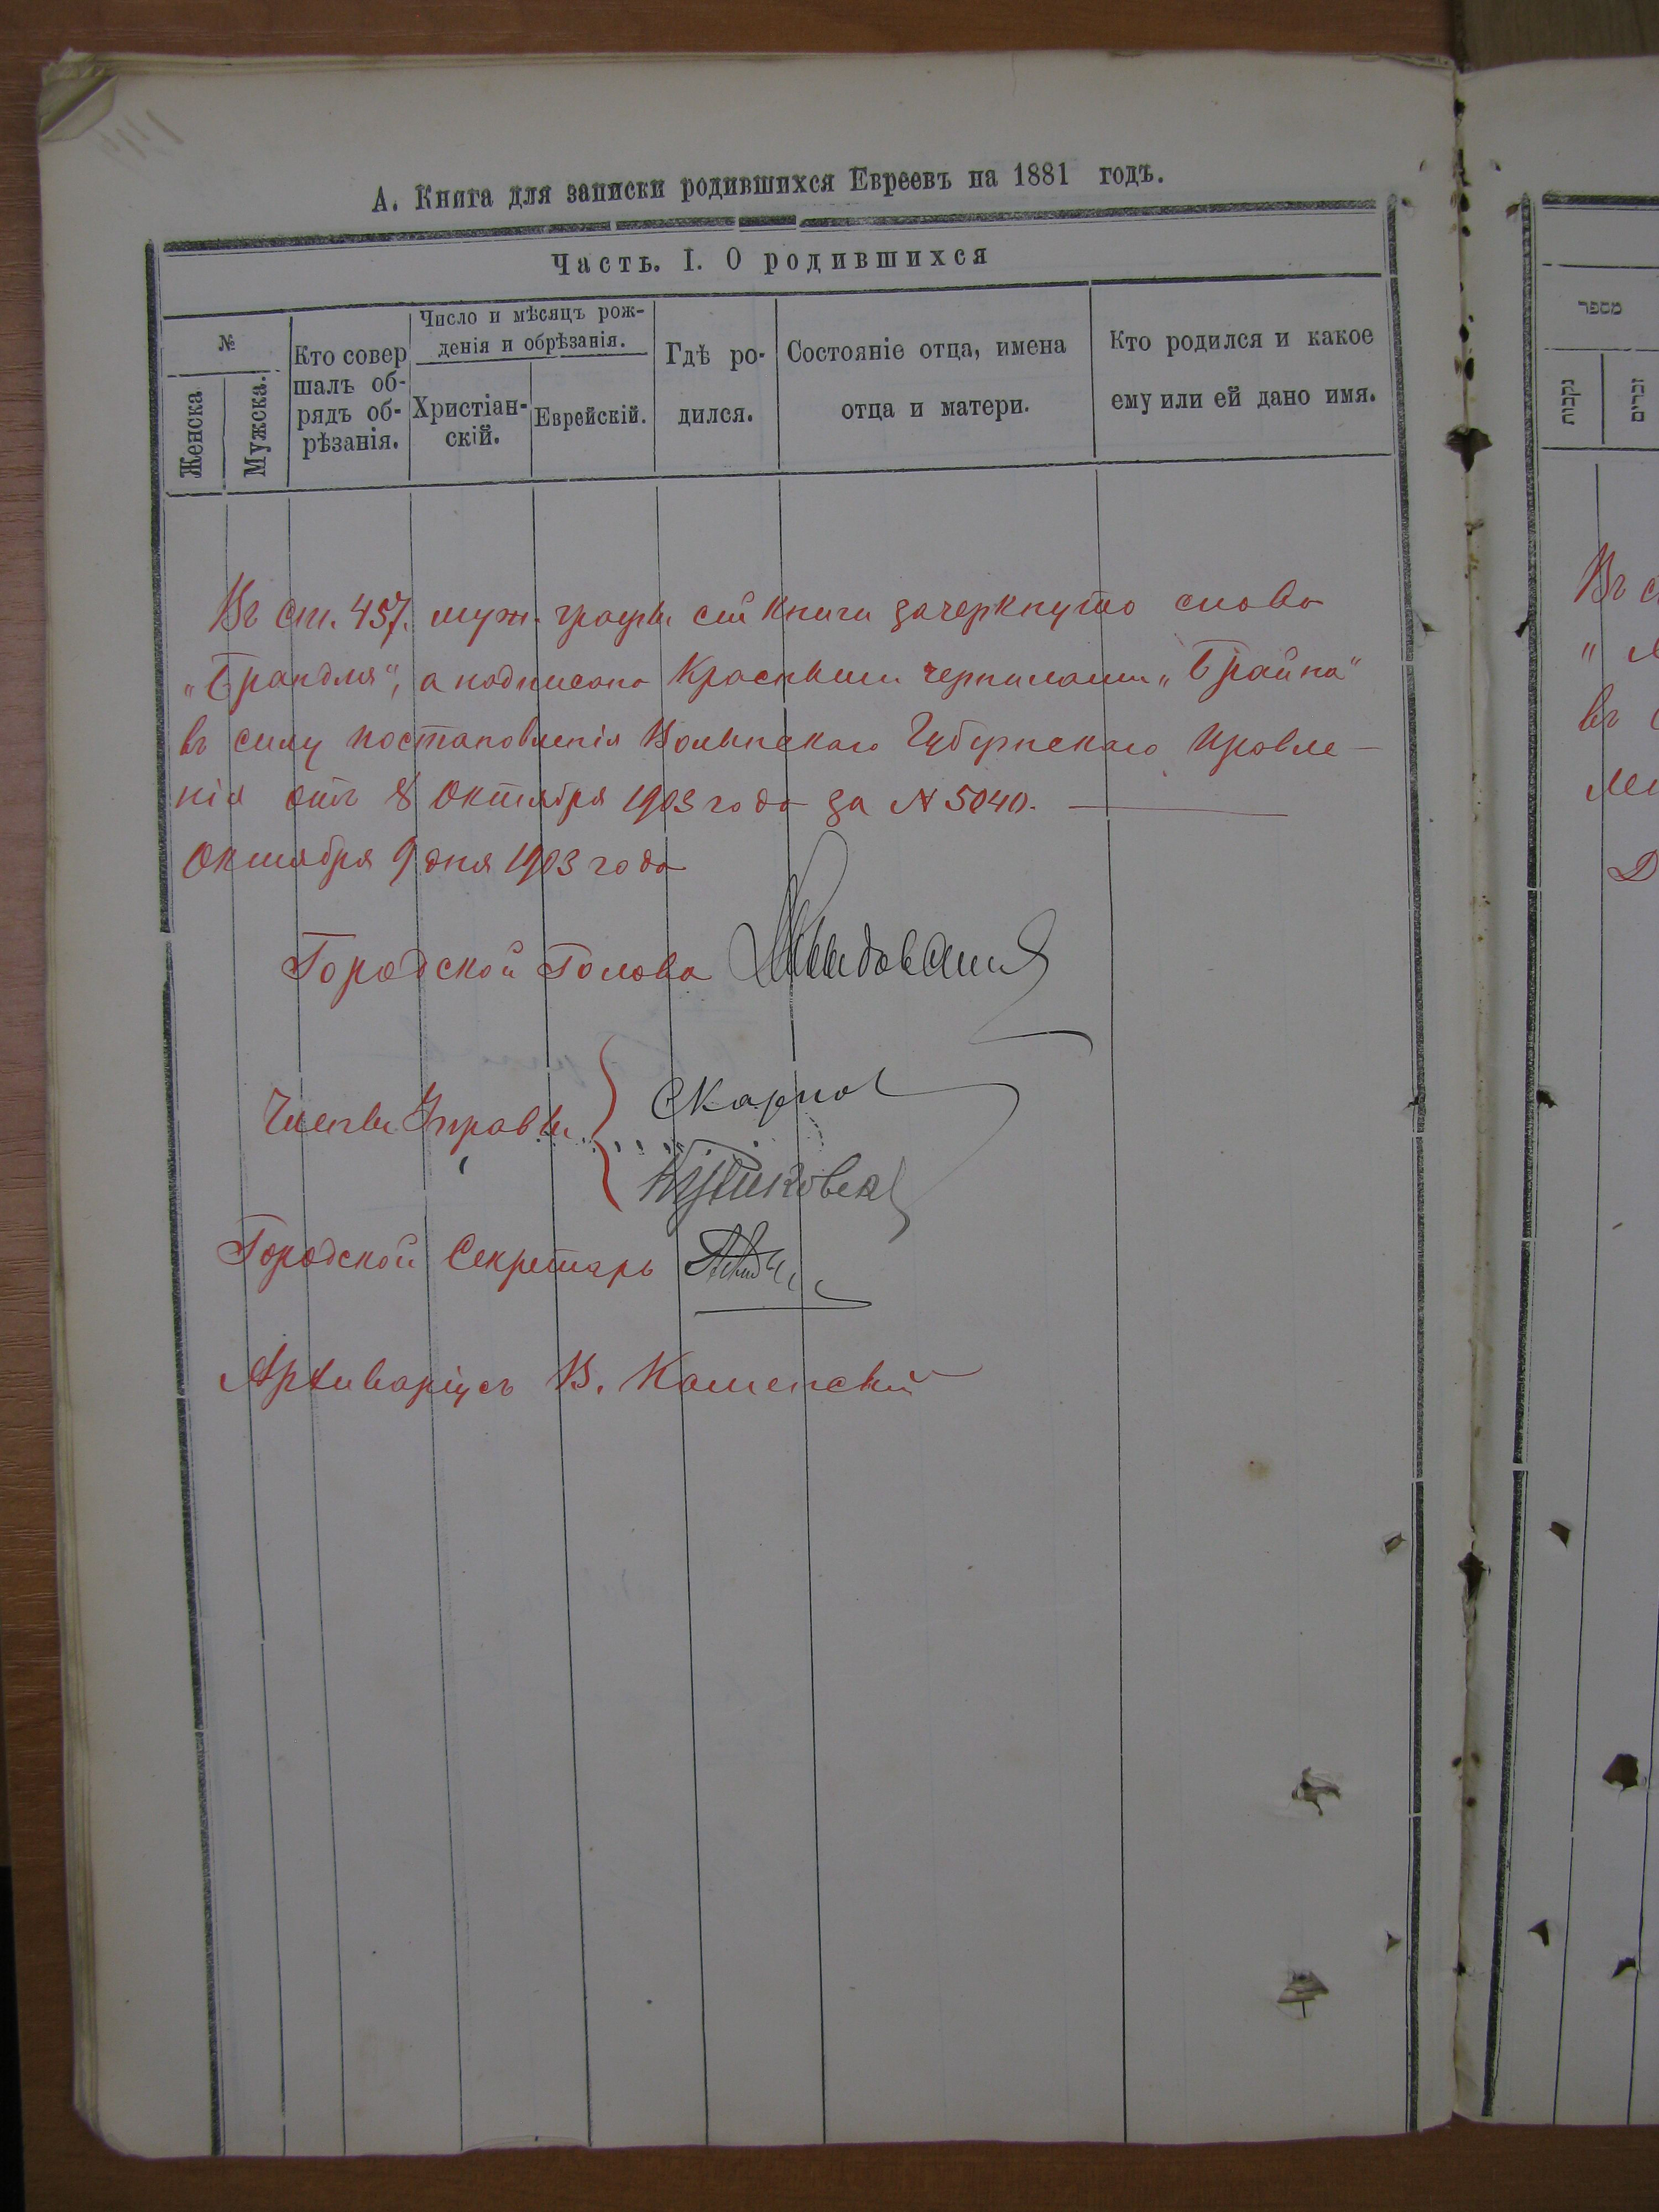 А. Книга для записки родившихся Евреевъ на 1881 годъ.
Часть. I. О родившихся
№
Женска
Мужска.
Кто совер
шалъ об-
рядъ об-
рѣзанія.
Число и мѣсяцъ рож-
денія и обрѣзанія.
Христіан-
скій.
Еврейскій.
Гдѣ ро-
дился.
Состояніе отца, имена
отца и матери.
Кто родился и какое
ему или ей дано имя.
Въ ст. 457. муж. графы сей книги зачеркнуто слово
„Брандля", а надписано красными чернилами „Брайна"
въ силу постановленія Волынскаго Губернскаго Правле-
нія отъ 8 Октября 1903 года за № 5040.
Октября 9 дня 1903 года
Городской Голова
Члены Управы
СКарпов
Городской Секретарь
Архиваріусъ В. Каменскій
מספר
נקבות
זכרים
Въ с
„
въ
Д